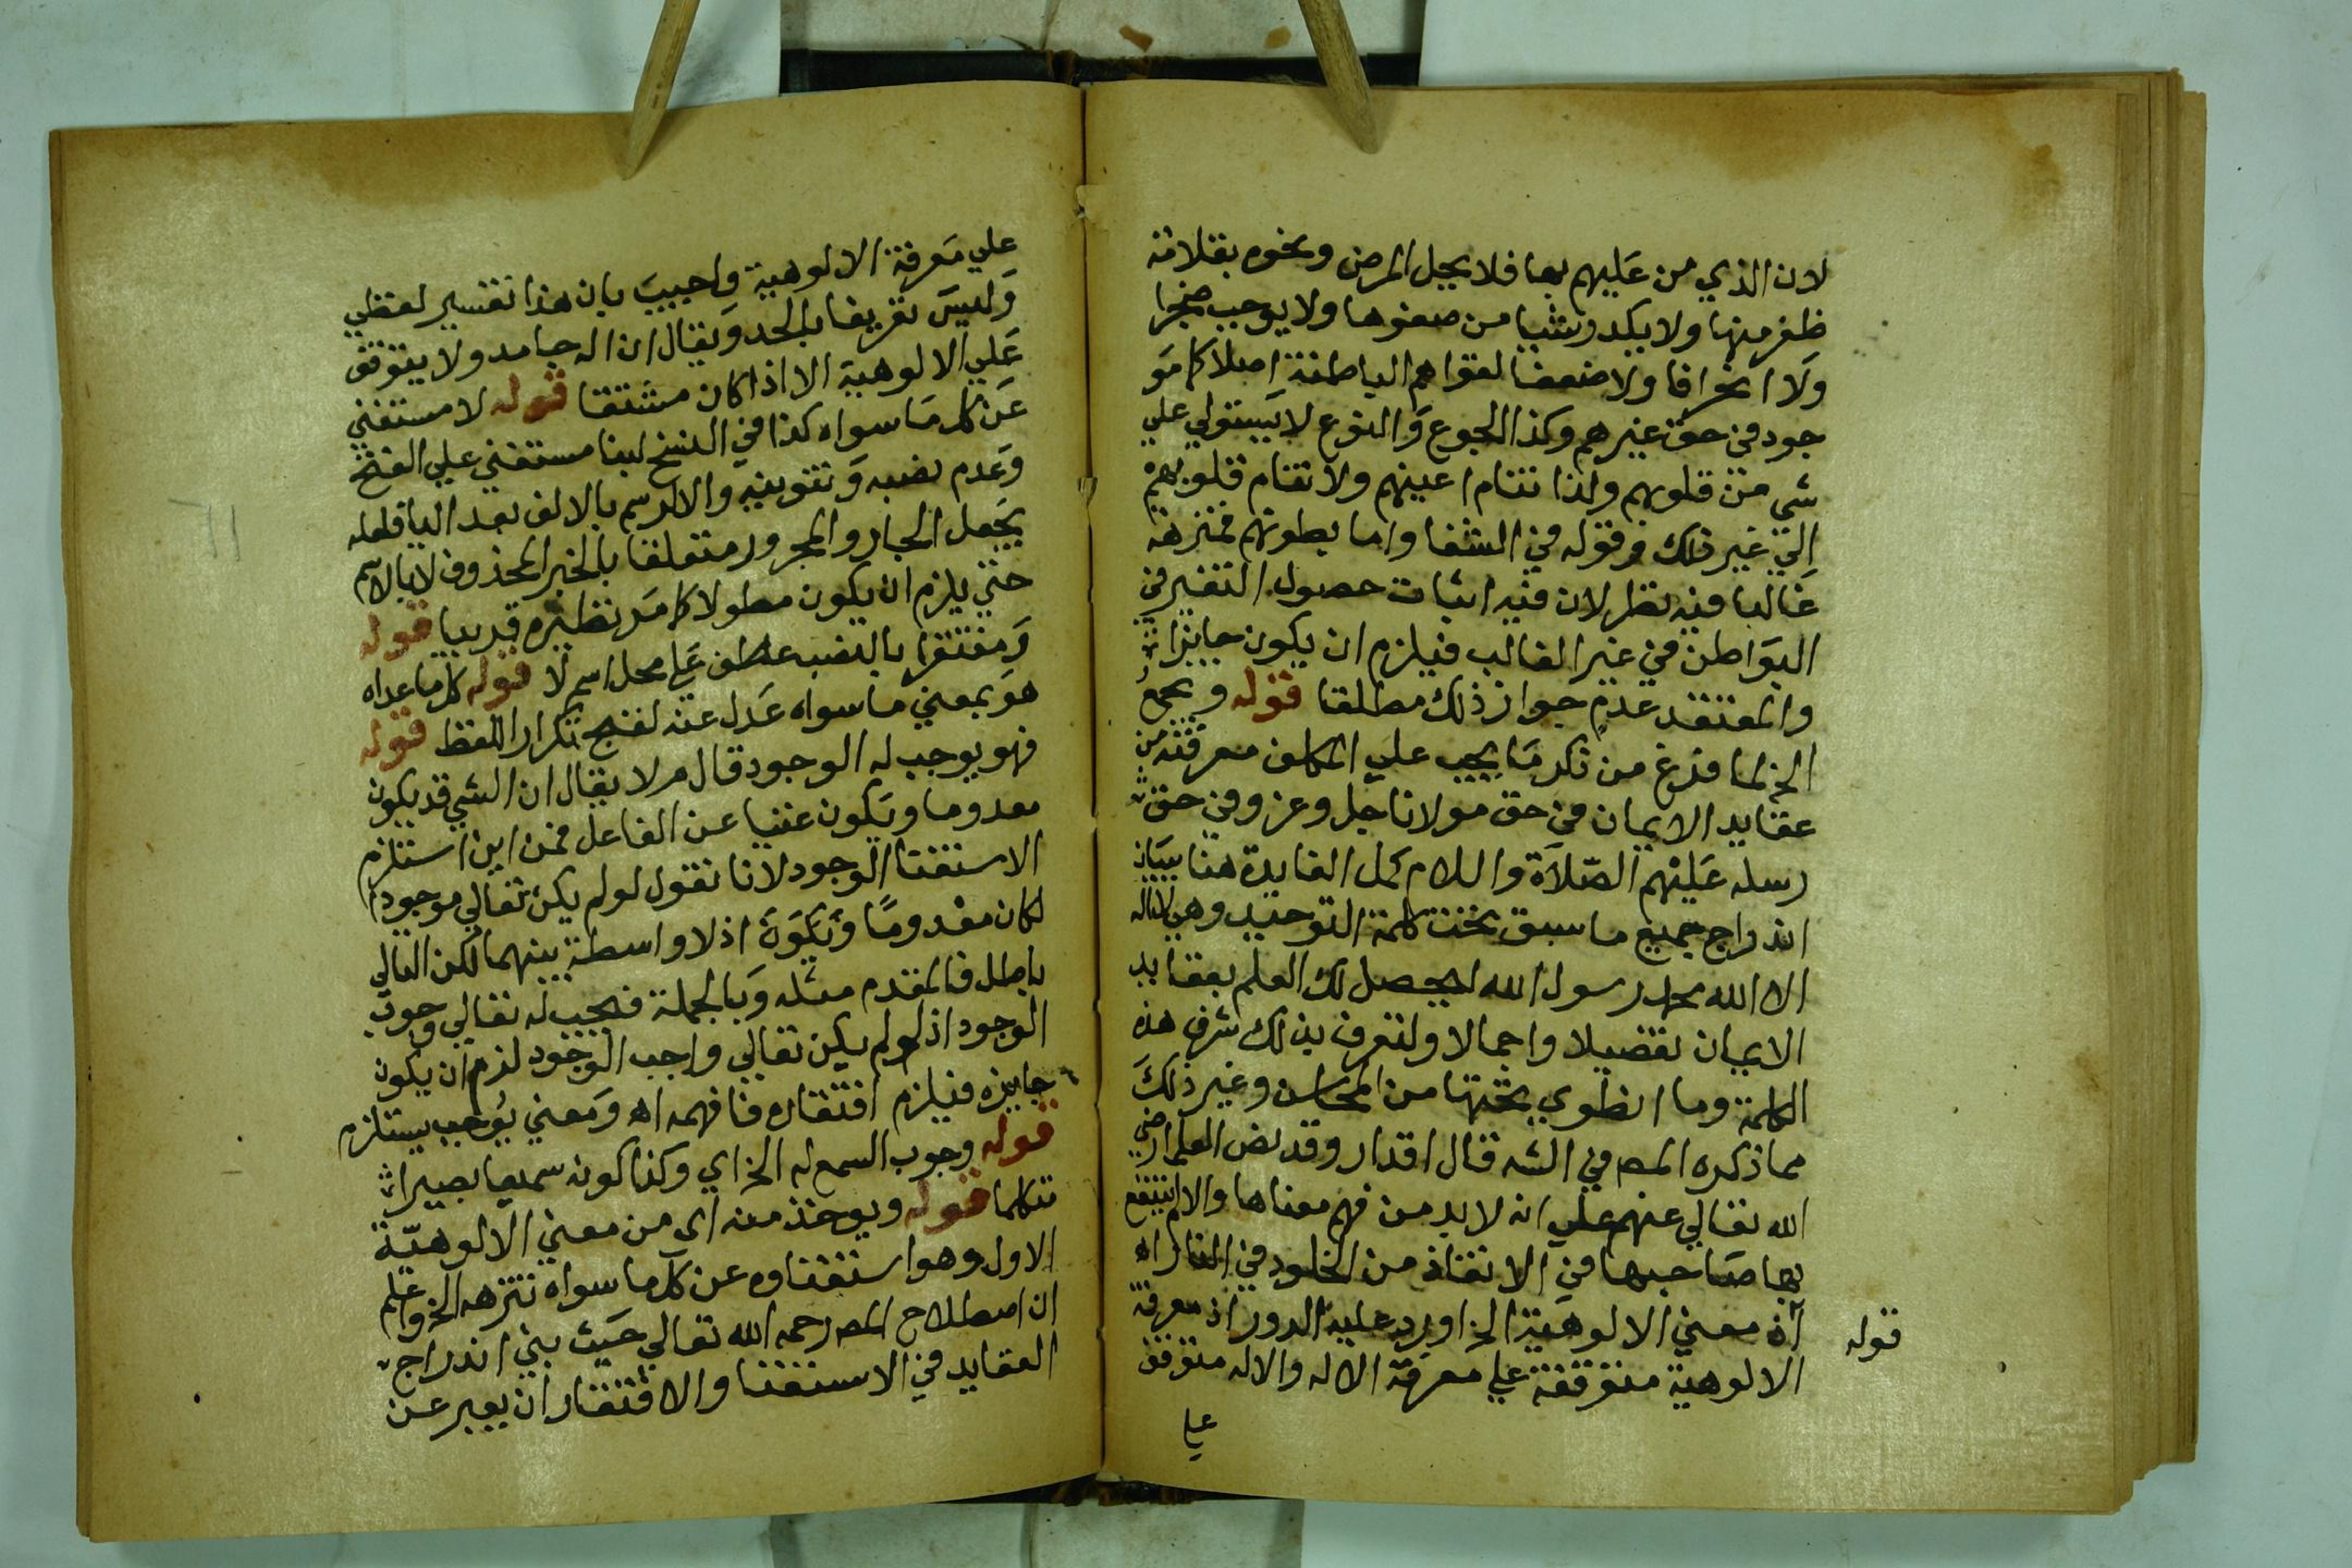 لان الذي من عليهم بها فلا يحل المرض ونحوه بقلامة
ظفر منها ولا يكدر شيا من صفوها ولا يوجب ضجرا
ولا انحرافا ولا ضعفا لقواهم الباطنة اصلا كما هو
جود في حق غيرهم وكذا الجوع والنوع لا يستولي علي
شي من قلوبهم ولذا تنام اعينهم ولا تنام قلوبهم
الي غير ذلك وقوله في الشفا واما بطونهم فمنزهة
غالبا فيه نظر لان فيه اثبات حصول التغير في
البواطن في غير الغالب فيلزم ان يكون جايزا
والمعتقد عدم جواز ذلك مطلقا قوله ويجمع
الخ لما فرغ من ذكر ما يجب علي المكلف معرفته من
عقايد الايمان في حق مولانا جل وعز وفي حق
رسله عليهم الصلاة والسلام كمل الفايدة هنا ببيان
اندراج جميع ما سبق تحت كلمة التوحيد وهي لااله
الا الله محمد رسول الله ليحصل لك العلم بعقايد
الايمان تفضيلا واجمالا ولتعرف بذلك شرف هذه
الكلمة وما انطوي تحتها من المحاسن وغير ذلك
مما ذكره المصـ في الشـ قال اقدار وقد نص العلما رضي
الله تعالي عنهم علي انه لا بد من فهم معناها والا لم ينتفع
بها صاحبها في الانقاذ من الخلود في النار اهـ
قوله
اذ معني الالوهية الخ اورد عليه الدور اذ معرفة
الالوهية متوقفة علي معرفة الاله والاله متوقف
علي
علي معرفة الالوهية واجيب بان هذا تفسير لفظي
وليس تعريفا بالحد ويقال ان اله جامد ولا يتوقف
علي الالوهية الا اذا كان مشتقا قوله لا مستغني
عن كل ما سواه كذا في النسخ لبنا مستغني علي الفتح
وعدم نصبه وتنوينه والا لرسم بالالف بعد اليا فلعله
يجعل الجار والمجرور متعلقا بالخبر المحذوف لا بالاسم
حتي يلزم ان يكون مطولا كما مر نظيره قريبا قوله
ومفتقرا بالنصب عطف علي محل اسم لا قوله كل ما عداه
هو بمعني ما سواه عدل عنه لفتح تكرار اللفظ قوله
فهو يوجب له الوجود قال م ولا يقال ان الشي قد يكون
معدوما ويكون غنيا عن الفاعل فمن اين استلزم
الاستغنا الوجود لانا نقول لو لم يكن تعالي موجودا
لكان معدوما ويكون اذ لا واسطة بينهما لكن التالي
باطل فالمقدم مثله وبالجملة فيجب له تعالي وجوب
الوجود اذ لو لم يكن تعالي واجب الوجود لزم ان يكون
جايزه فيلزم افتقاره فافهمه اهـ ومعني يوجب يستلزم
قوله وجوب السمع له الخ اي وكذا كونه سميعا بصيرا
متكلما قوله ويوخذ منه اي من معني الالوهية
الاول وهو استغناوه عن كل ما سواه تنزهه الخ واعلم
ان اصطلاح المصـ رحمه الله تعالي حيث بني اندراج
العقايد في الاستغنا والافتقار ان يعبر عن